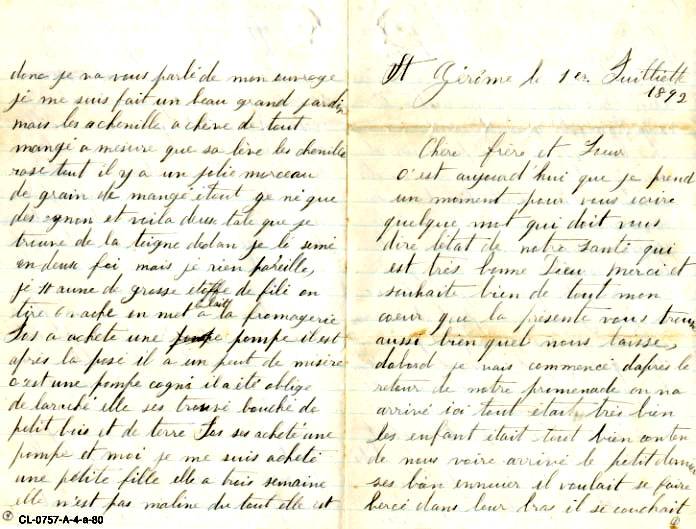 St Gérôme le 1er Juilliette
1892
Chère frère et Soeur
C'est aujourd'hui que je prend
un moment pour vous ecrire
quelque mot qui doit vous
dire l'état de notre santé qui
est très bonne Dieu merci et
souhaite bien de tout mon
coeur que la présente vous trouve
aussi bien quel nous laisse,
dabord je vais commencé daprès le
retour de notre promenade on na
arrivé ici tout était très bien
les enfant était tout bien conten
de nous voire arrivé le petit
ses bân ennuier il voulait se faire
bercé dans leur bras il se couchait
donc je va vous parlé de mon ouvrage
je me suis fait un beau grand jardin
mais les achenille achève de tout
mangé a mesure que sa lève les chenille
rase tout il y a un jolie morceau
de grain de mangé itout ge né que
des ognon et voila deux tale que je
trouve de la teigne dedan je lé semé
en deux foi mais je rien pareille,
je aune de grosse etoffe de filé on
tire 6 vache on met le lait a la fromagerie
Jos a acheté une pompe il est
après la posé il a un peut de misère
c'est une pompe cogné il a été oblige
de laraché elle ses trouvé bouché de
petit bois et de terre Jos ses acheté une
pompe et moi je me suis acheté
une petite fille elle a trois semaine
elle n'est pas maline du tout elle est
CL-0757-A-4-a-80